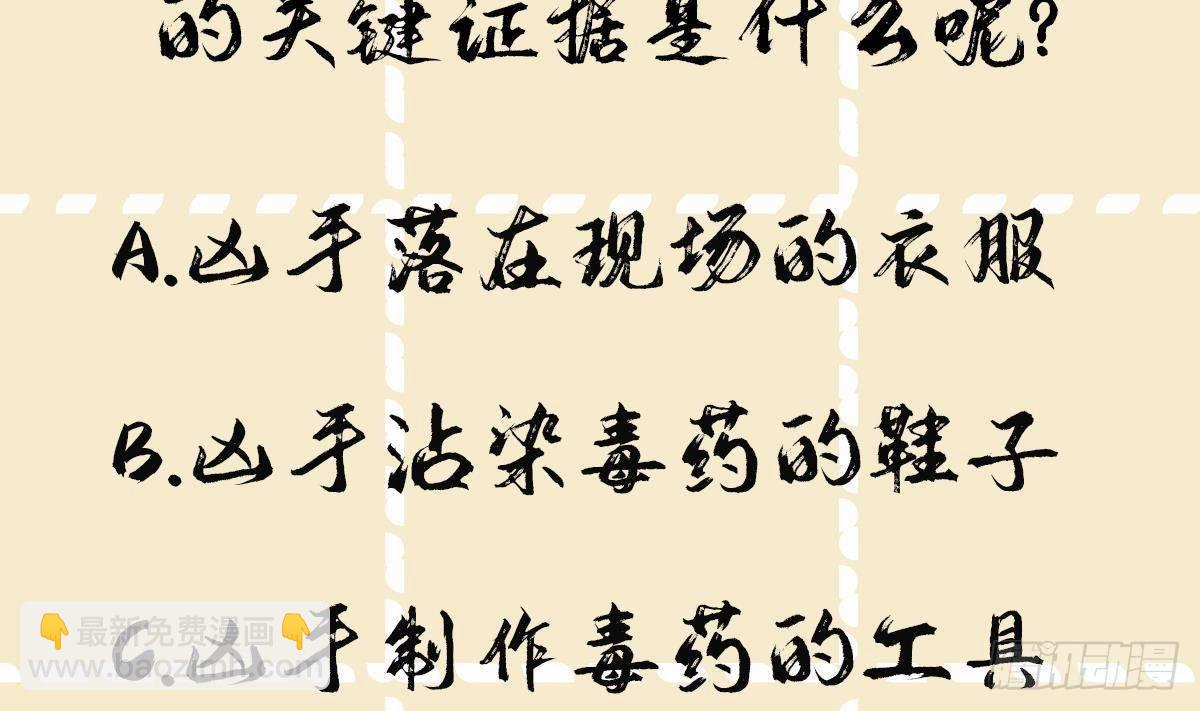 的关键证据是什么呢？
A.凶手落在现场的衣服
B.凶手沾染毒药的鞋子
C.凶手制作毒药的工具
👇最新免费漫画👇
www.baozimh.com
腾讯动漫